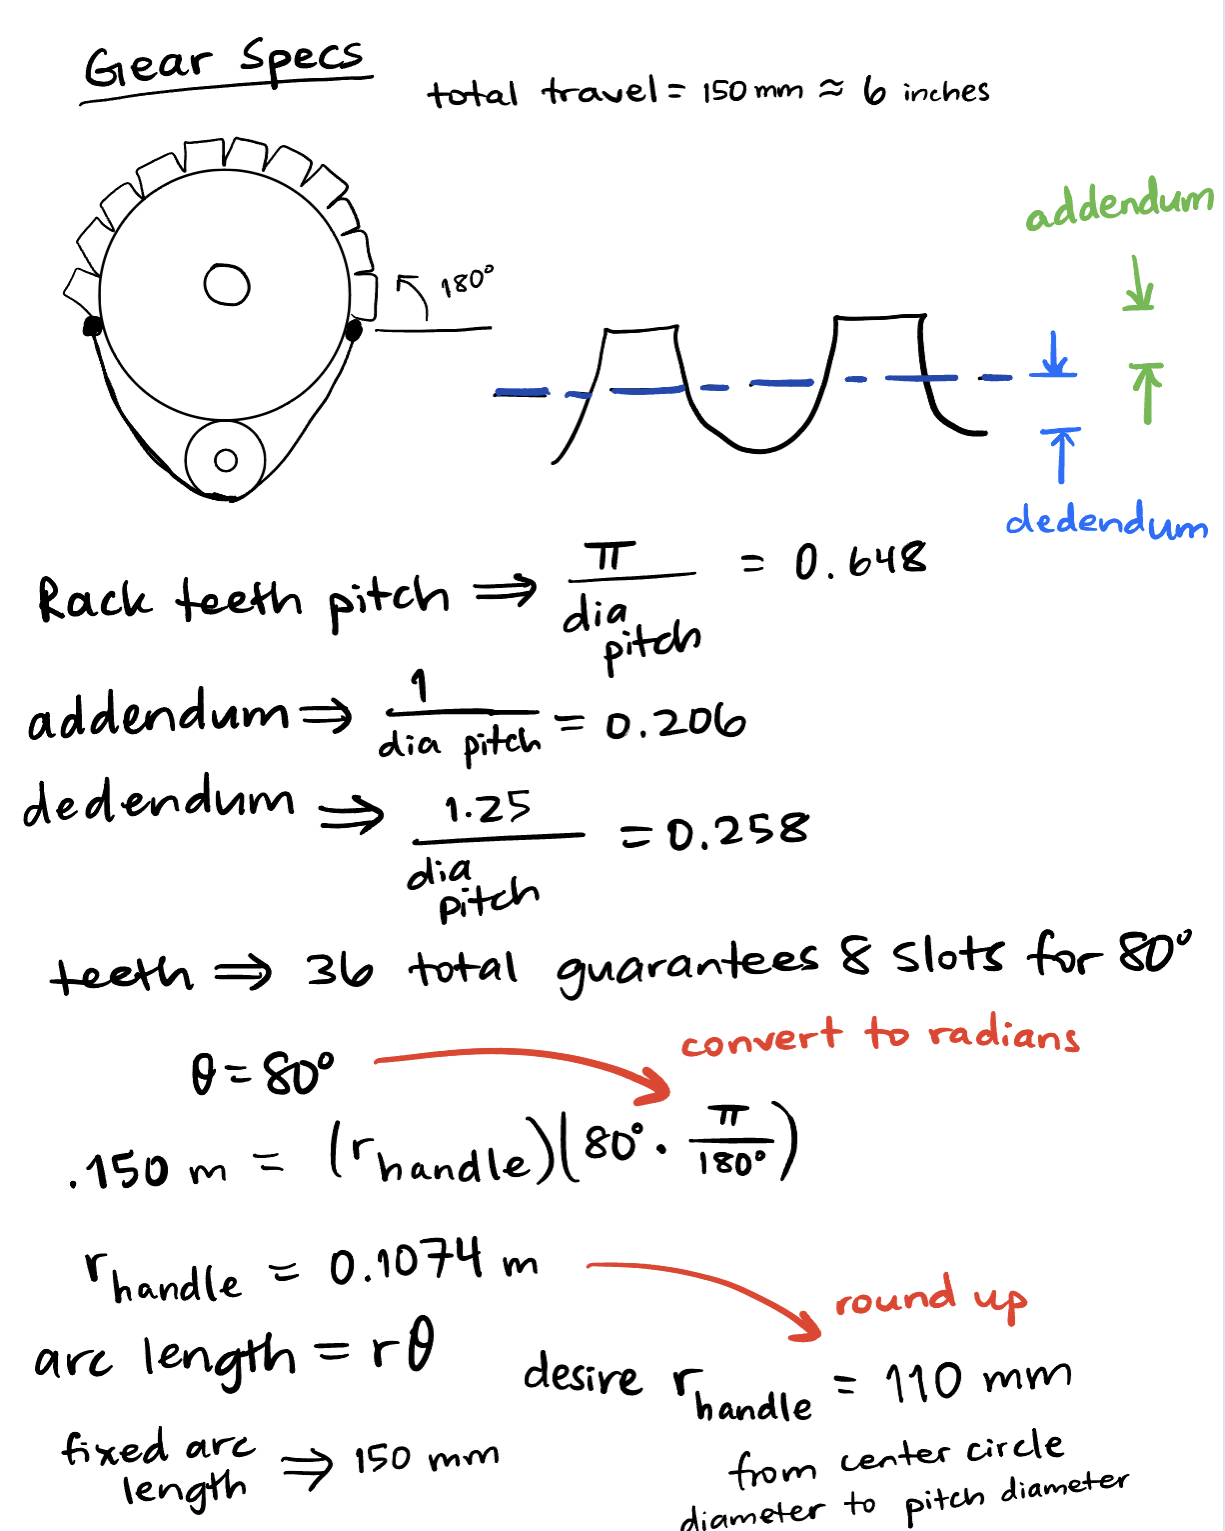 Gear Specs
total travel = 150 mm ≈ 6 inches
addendum
180°
dedendum
Rack teeth pitch ⇒ π / dia pitch = 0.648
addendum ⇒ 1 / dia pitch = 0.206
dedendum ⇒ 1.25 / dia pitch = 0.258
teeth ⇒ 36 total guarantees 8 slots for 80°
convert to radians
θ = 80°
.150 m = (r handle)(80° · π / 180°)
r handle = 0.1074 m
round up
arc length = rθ
desire r handle = 110 mm
fixed arc length ⇒ 150 mm
from center circle
diameter to pitch diameter